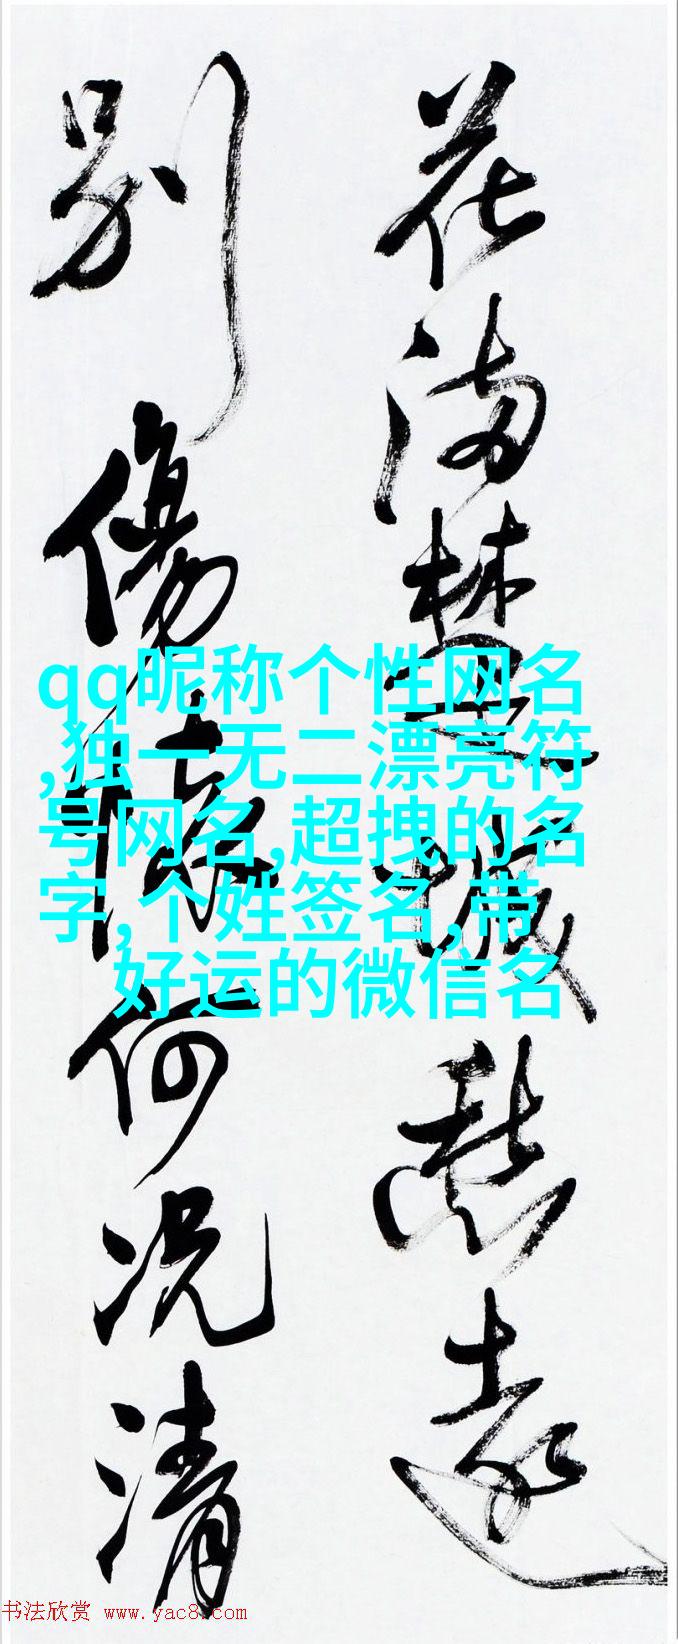 花满楚城愁远
别伤情何况清
qq昵称个性网名
,独一无二漂亮符
号网名,超拽的名
字,个姓签名,带
好运的微信名
书法欣赏 www.yac8.com